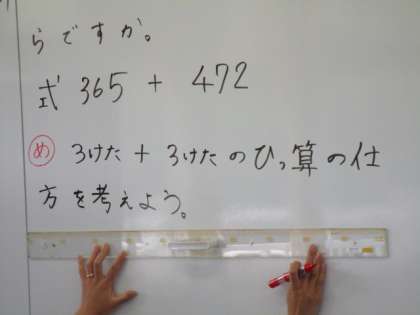 らですか。
式 365 + 472
め 3けた + 3けたのひっ算の仕
方を考えよう。